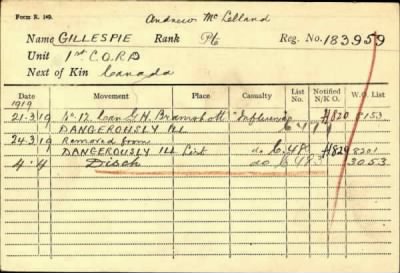 Form R. 149.
Andrew McLelland
Name GILLESPIE Rank Pte Reg. No. 183959
Unit 1st C.O.R.D
Next of Kin Canada
Date Movement Place Casualty List No. Notified N/K O. W.O. List
1919
21-3-19 No 12 Can G.H. Bramshott "Influenza H820 8153
DANGEROUSLY ILL
24-3-19 Removed from
DANGEROUSLY ILL List do C.480 H829 8201
4.4 Disch do C.483 3053